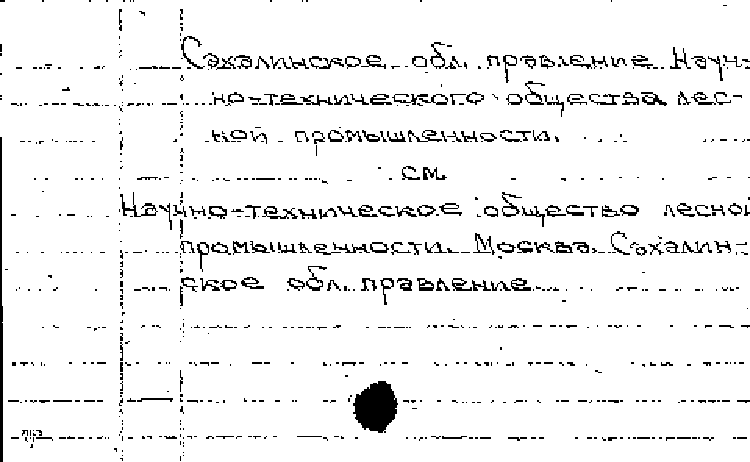 Сахалинское обл. правление Науч-
но-технического общества лес-
ной промышленности.
см.
Научно-техническое общество лесной
промышленности. Москва. Сахалин-
ское обл. правление